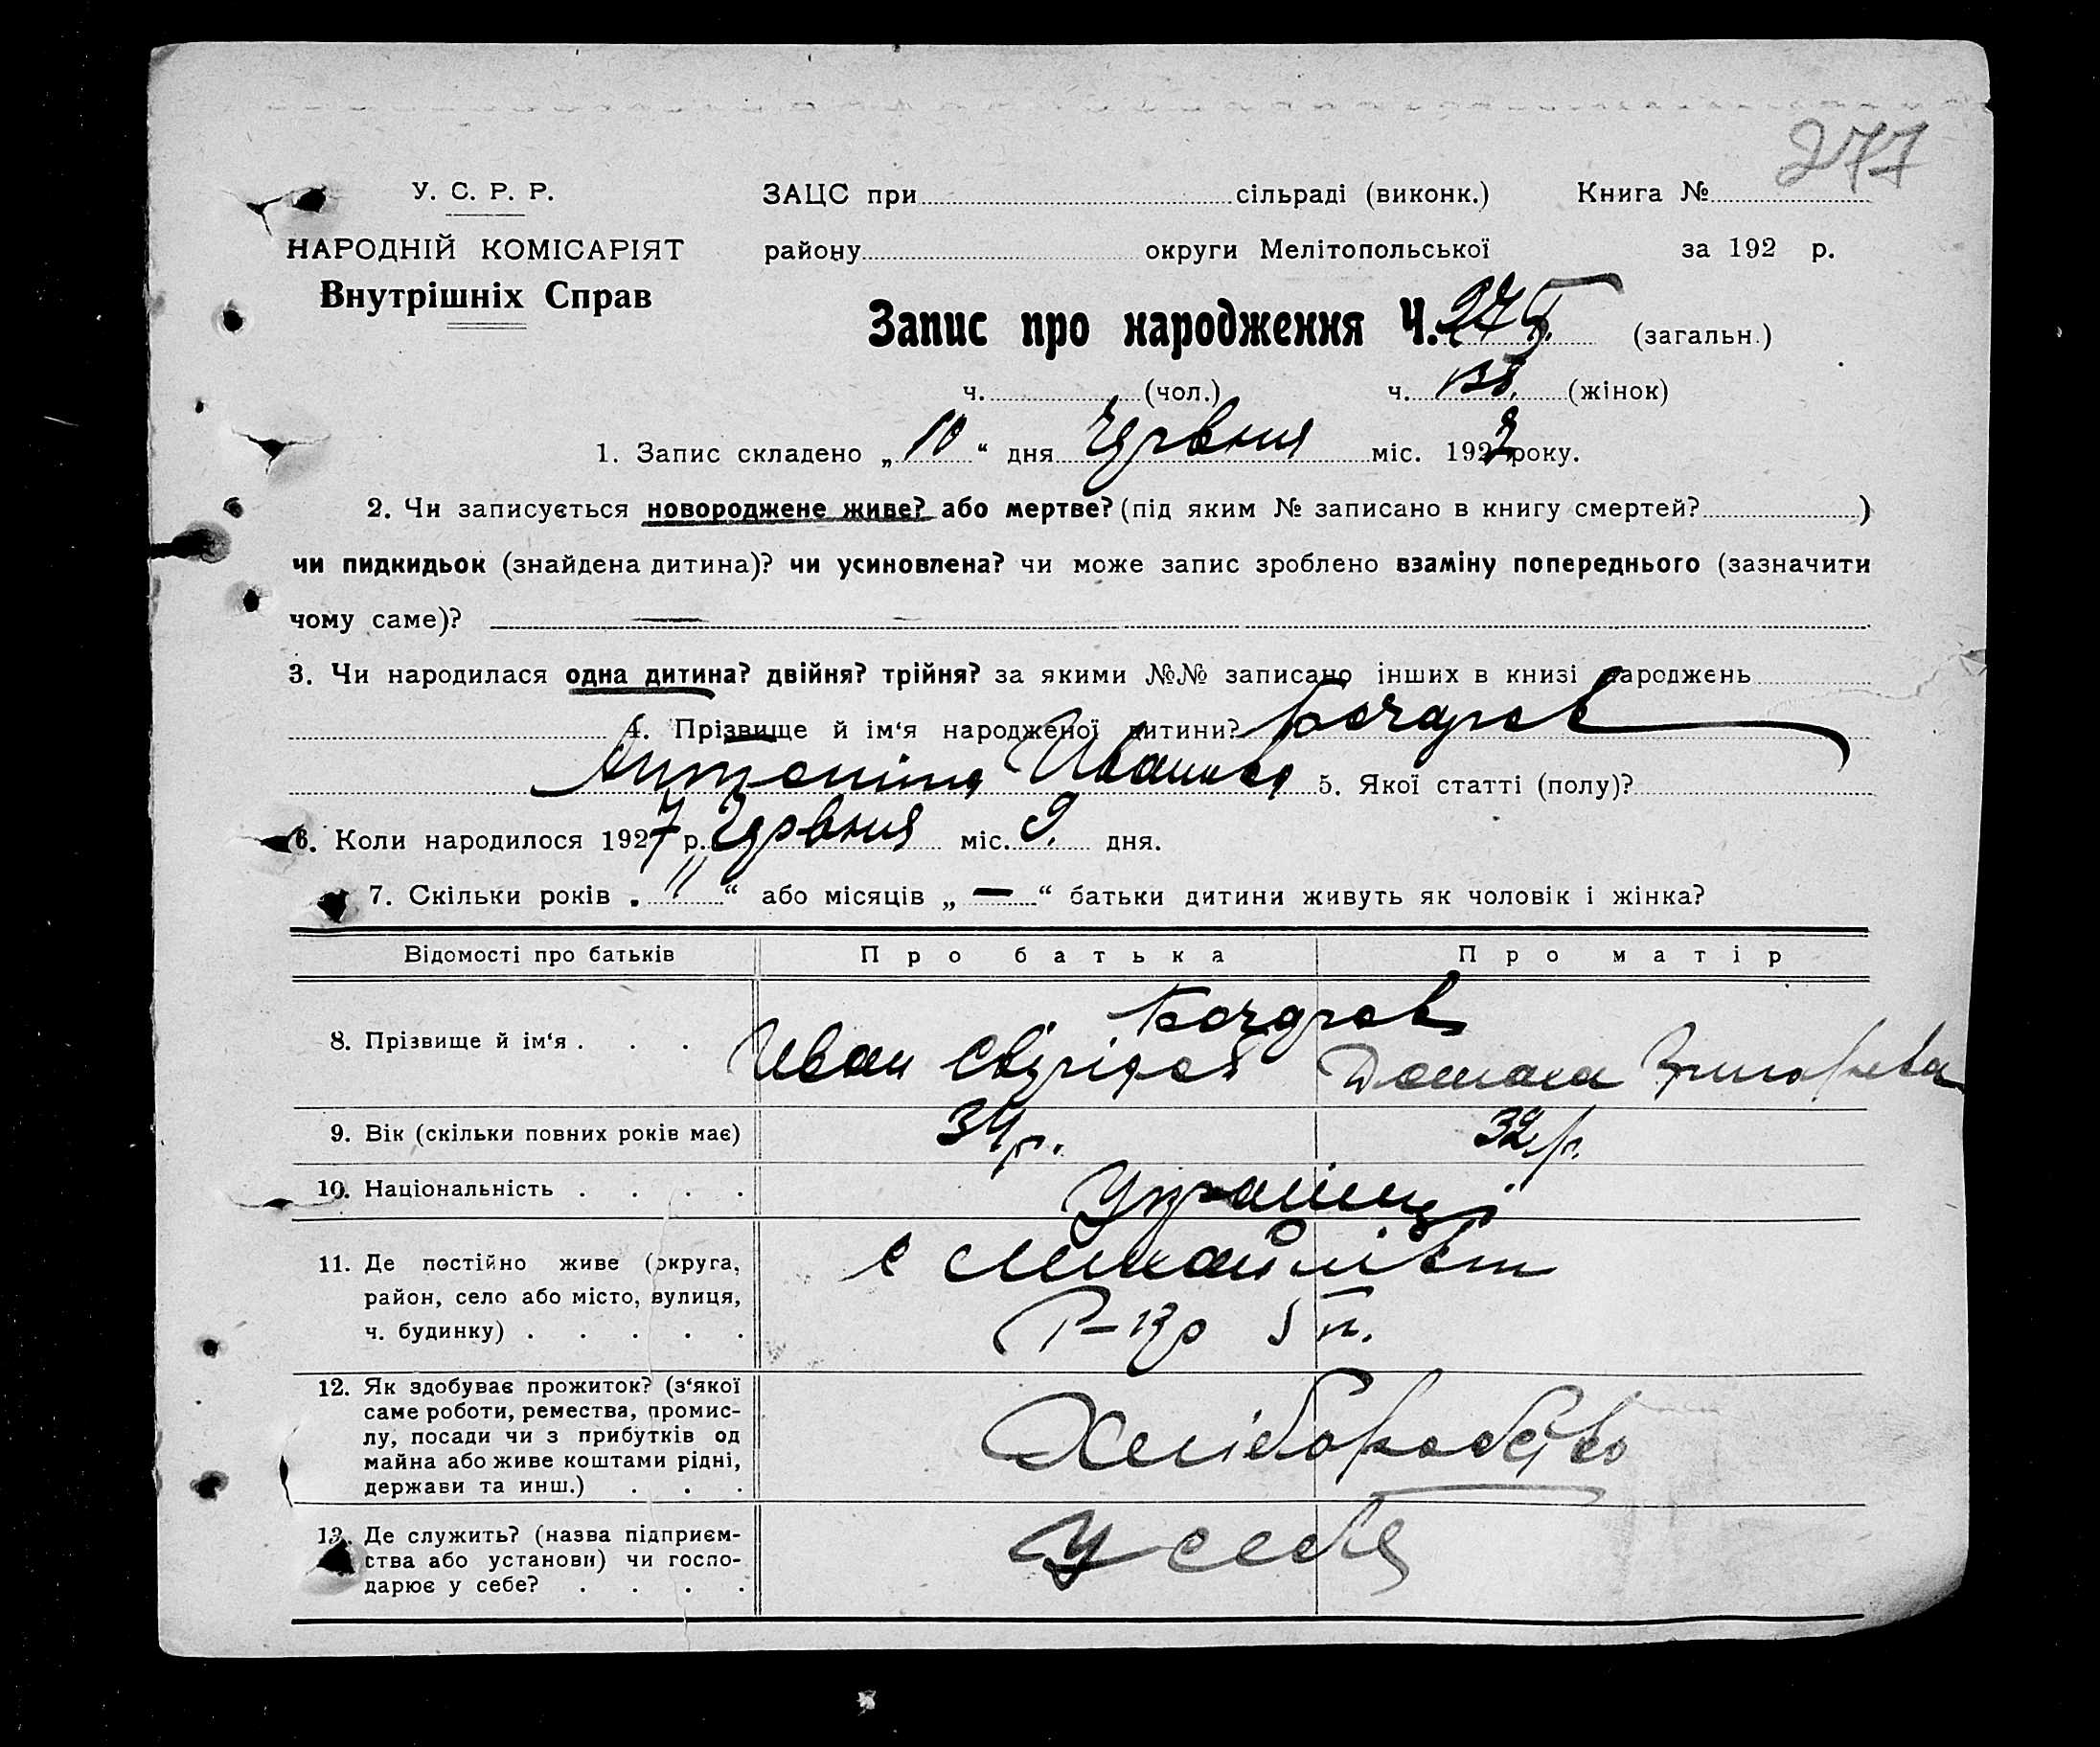 277
У. С. Р. Р. ЗАЦС при сільраді (виконк.) Книга №
НАРОДНІЙ КОМІСАРІЯТ району округи Мелітопольської за 192 р.
Внутрішніх Справ
Запис про народження Ч. 275 (загальн.)
ч. (чол.) ч. 138. (жінок)
1. Запис складено „ 10 “ дня Червня міс. 1927 року.
2. Чи записується новороджене живе? або мертве? (під яким № записано в книгу смертей? )
чи пидкидьок (знайдена дитина)? чи усиновлена? чи може запис зроблено взаміну попереднього (зазначити
чому саме)? —
3. Чи народилася одна дитина? двійня? трійня? за якими №№ записано інших в книзі народжень
4. Прізвище й ім‘я народженої дитини? Бочаров
Антоніна Иванивв 5. Якої статті (полу)?
6. Коли народилося 1927 р. Червня міс. 9. дня.
7. Скільки років „ 11 “ або місяців „ — “ батьки дитини живуть як чоловік і жінка?
Відомості про батьків Про батька Про матір
Бочаров
8. Прізвище й ім‘я . . . Иван Свірідов Домана Григорьева
9. Вік (скільки повних років має) 34 р. 32 р.
10. Національність . . . . Українці
11. Де постійно живе (округа, с Михайлівка
район, село або місто, вулиця,
ч. будинку) . . . . .
12. Як здобуває прожиток? (з‘якої
саме роботи, ремества, промис-
лу, посади чи з прибутків од Хліборобство
майна або живе коштами рідні,
держави та инш.) . . .
13. Де служить? (назва підприєм-
ства або установи) чи госпо- У себе
дарює у себе? . . . .